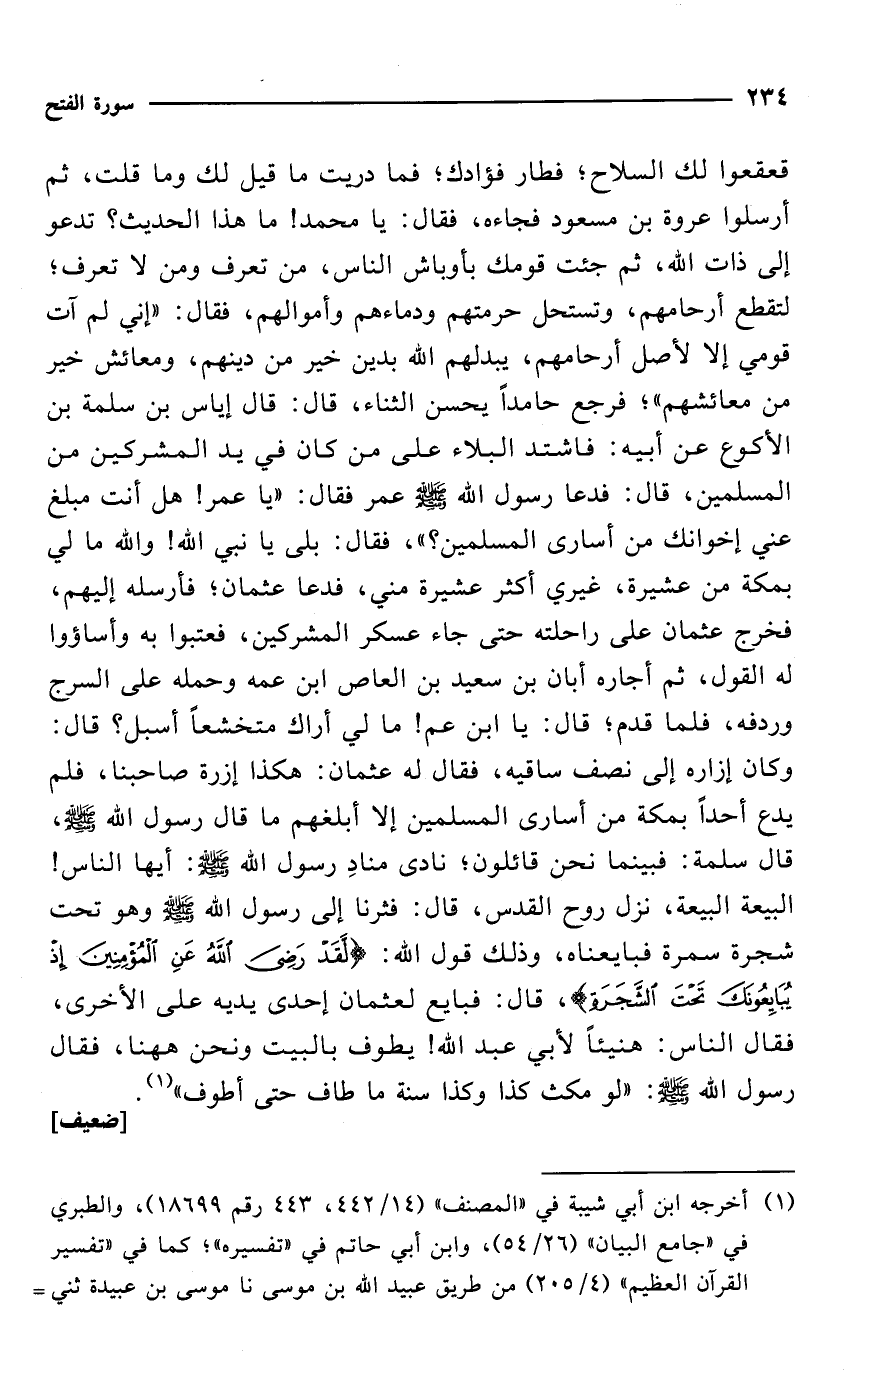 ٢٣٤ سورة الفتح
قعقعوا لك السلاح؛ فطار فؤادك؛ فما دريت ما قيل لك وما قلت، ثم
أرسلوا عروة بن مسعود فجاءه، فقال: يا محمد! ما هذا الحديث؟ تدعو
إلى ذات الله، ثم جئت قومك بأوباش الناس، من تعرف ومن لا تعرف؛
لتقطع أرحامهم، وتستحل حرمتهم ودماءهم وأموالهم، فقال: «إني لم آت
قومي إلا لأصل أرحامهم، يبدلهم الله بدين خير من دينهم، ومعائش خير
من معائشهم»؛ فرجع حامداً يحسن الثناء، قال: قال إياس بن سلمة بن
الأكوع عن أبيه: فاشتد البلاء على من كان في يد المشركين من
المسلمين، قال: فدعا رسول الله ﷺ عمر فقال: «يا عمر! هل أنت مبلغ
عني إخوانك من أسارى المسلمين؟»، فقال: بلى يا نبي الله! والله ما لي
بمكة من عشيرة، غيري أكثر عشيرة مني، فدعا عثمان؛ فأرسله إليهم،
فخرج عثمان على راحلته حتى جاء عسكر المشركين، فعتبوا به وأساؤوا
له القول، ثم أجاره أبان بن سعيد بن العاص ابن عمه وحمله على السرج
وردفه، فلما قدم؛ قال: يا ابن عم! ما لي أراك متخشعاً أسبل؟ قال:
وكان إزاره إلى نصف ساقيه، فقال له عثمان: هكذا إزرة صاحبنا، فلم
يدع أحداً بمكة من أسارى المسلمين إلا أبلغهم ما قال رسول الله ﷺ،
قال سلمة: فبينما نحن قائلون؛ نادى منادِ رسول الله ﷺ: أيها الناس!
البيعة البيعة، نزل روح القدس، قال: فثرنا إلى رسول الله ﷺ وهو تحت
شجرة سمرة فبايعناه، وذلك قول الله: ﴿لَّقَدْ رَضِيَ ٱللَّهُ عَنِ ٱلْمُؤْمِنِينَ إِذْ
يُبَايِعُونَكَ تَحْتَ ٱلشَّجَرَةِ﴾، قال: فبايع لعثمان إحدى يديه على الأخرى،
فقال الناس: هنيئاً لأبي عبد الله! يطوف بالبيت ونحن ههنا، فقال
رسول الله ﷺ: «لو مكث كذا وكذا سنة ما طاف حتى أطوف»(١).
[ضعيف]
(١) أخرجه ابن أبي شيبة في «المصنف» (١٤/ ٤٤٢، ٤٤٣ رقم ١٨٦٩٩)، والطبري
في «جامع البيان» (٢٦/ ٥٤)، وابن أبي حاتم في «تفسيره»؛ كما في «تفسير
القرآن العظيم» (٤/ ٢٠٥) من طريق عبيد الله بن موسى نا موسى بن عبيدة ثني =